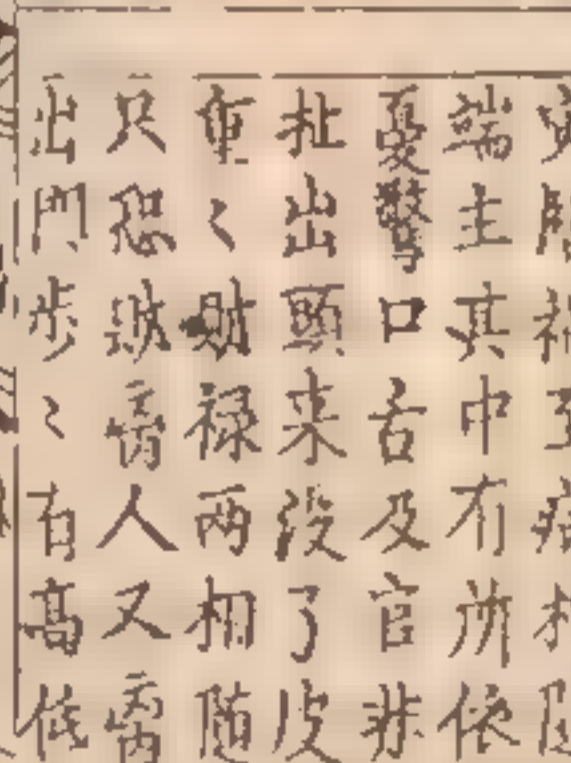 端主其中有所依
憂驚口舌及官非
扯出頭来没了皮
重〻財禄两相随
只恐人又
出門步〻有高低